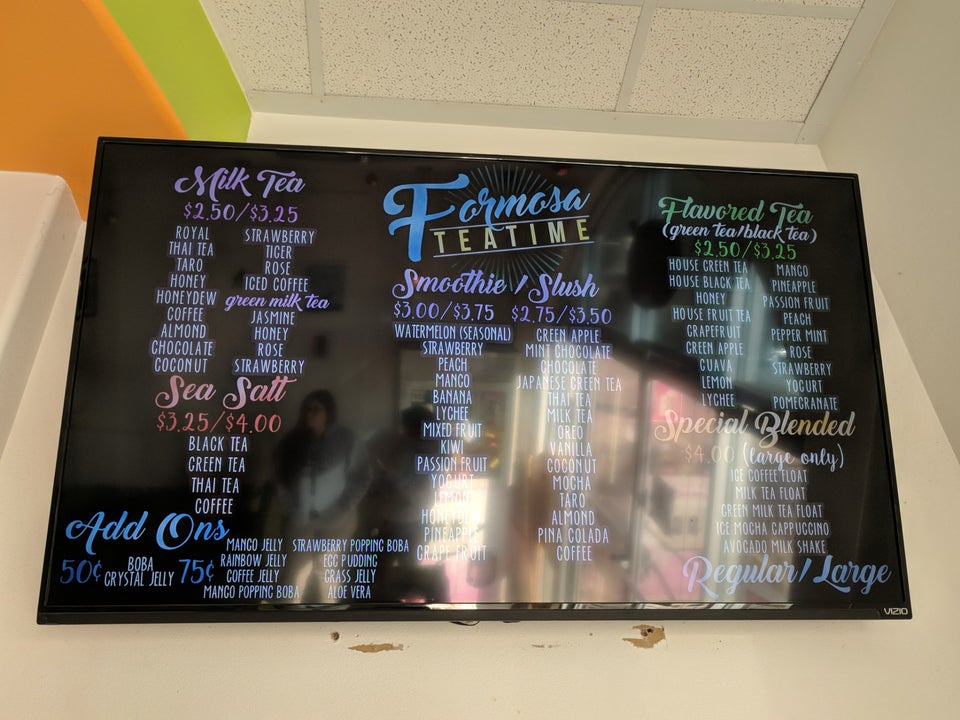 Milk Tea
$2.50/$3.25
ROYAL
THAI TEA
TARO
HONEY
HONEYDEW
COFFEE
ALMOND
CHOCOLATE
COCONUT
STRAWBERRY
TIGER
ROSE
ICED COFFEE
green milk tea
JASMINE
HONEY
ROSE
STRAWBERRY
Sea Salt
$3.25/$4.00
BLACK TEA
GREEN TEA
THAI TEA
COFFEE
Add Ons
50¢
BOBA
CRYSTAL JELLY
75¢
MANGO JELLY
RAINBOW JELLY
COFFEE JELLY
MANGO POPPING BOBA
STRAWBERRY POPPING BOBA
EGG PUDDING
GRASS JELLY
ALOE VERA
Formosa
TEATIME
Smoothie / Slush
$3.00/$3.75 $2.75/$3.50
WATERMELON (SEASONAL)
STRAWBERRY
PEACH
MANGO
BANANA
LYCHEE
MIXED FRUIT
KIWI
PASSION FRUIT
YOGURT
LEMON
HONEYDEW
PINEAPPLE
GRAPE FRUIT
GREEN APPLE
MINT CHOCOLATE
CHOCOLATE
JAPANESE GREEN TEA
THAI TEA
MILK TEA
OREO
VANILLA
COCONUT
MOCHA
TARO
ALMOND
PINA COLADA
COFFEE
Flavored Tea
(green tea/black tea)
$2.50/$3.25
HOUSE GREEN TEA
HOUSE BLACK TEA
HONEY
HOUSE FRUIT TEA
GRAPEFRUIT
GREEN APPLE
GUAVA
LEMON
LYCHEE
MANGO
PINEAPPLE
PASSION FRUIT
PEACH
PEPPER MINT
ROSE
STRAWBERRY
YOGURT
POMEGRANATE
Special Blended
$4.00 (large only)
ICE COFFEE FLOAT
MILK TEA FLOAT
GREEN MILK TEA FLOAT
ICE MOCHA CAPPUCCINO
AVOCADO MILK SHAKE
Regular/Large
VIZIO